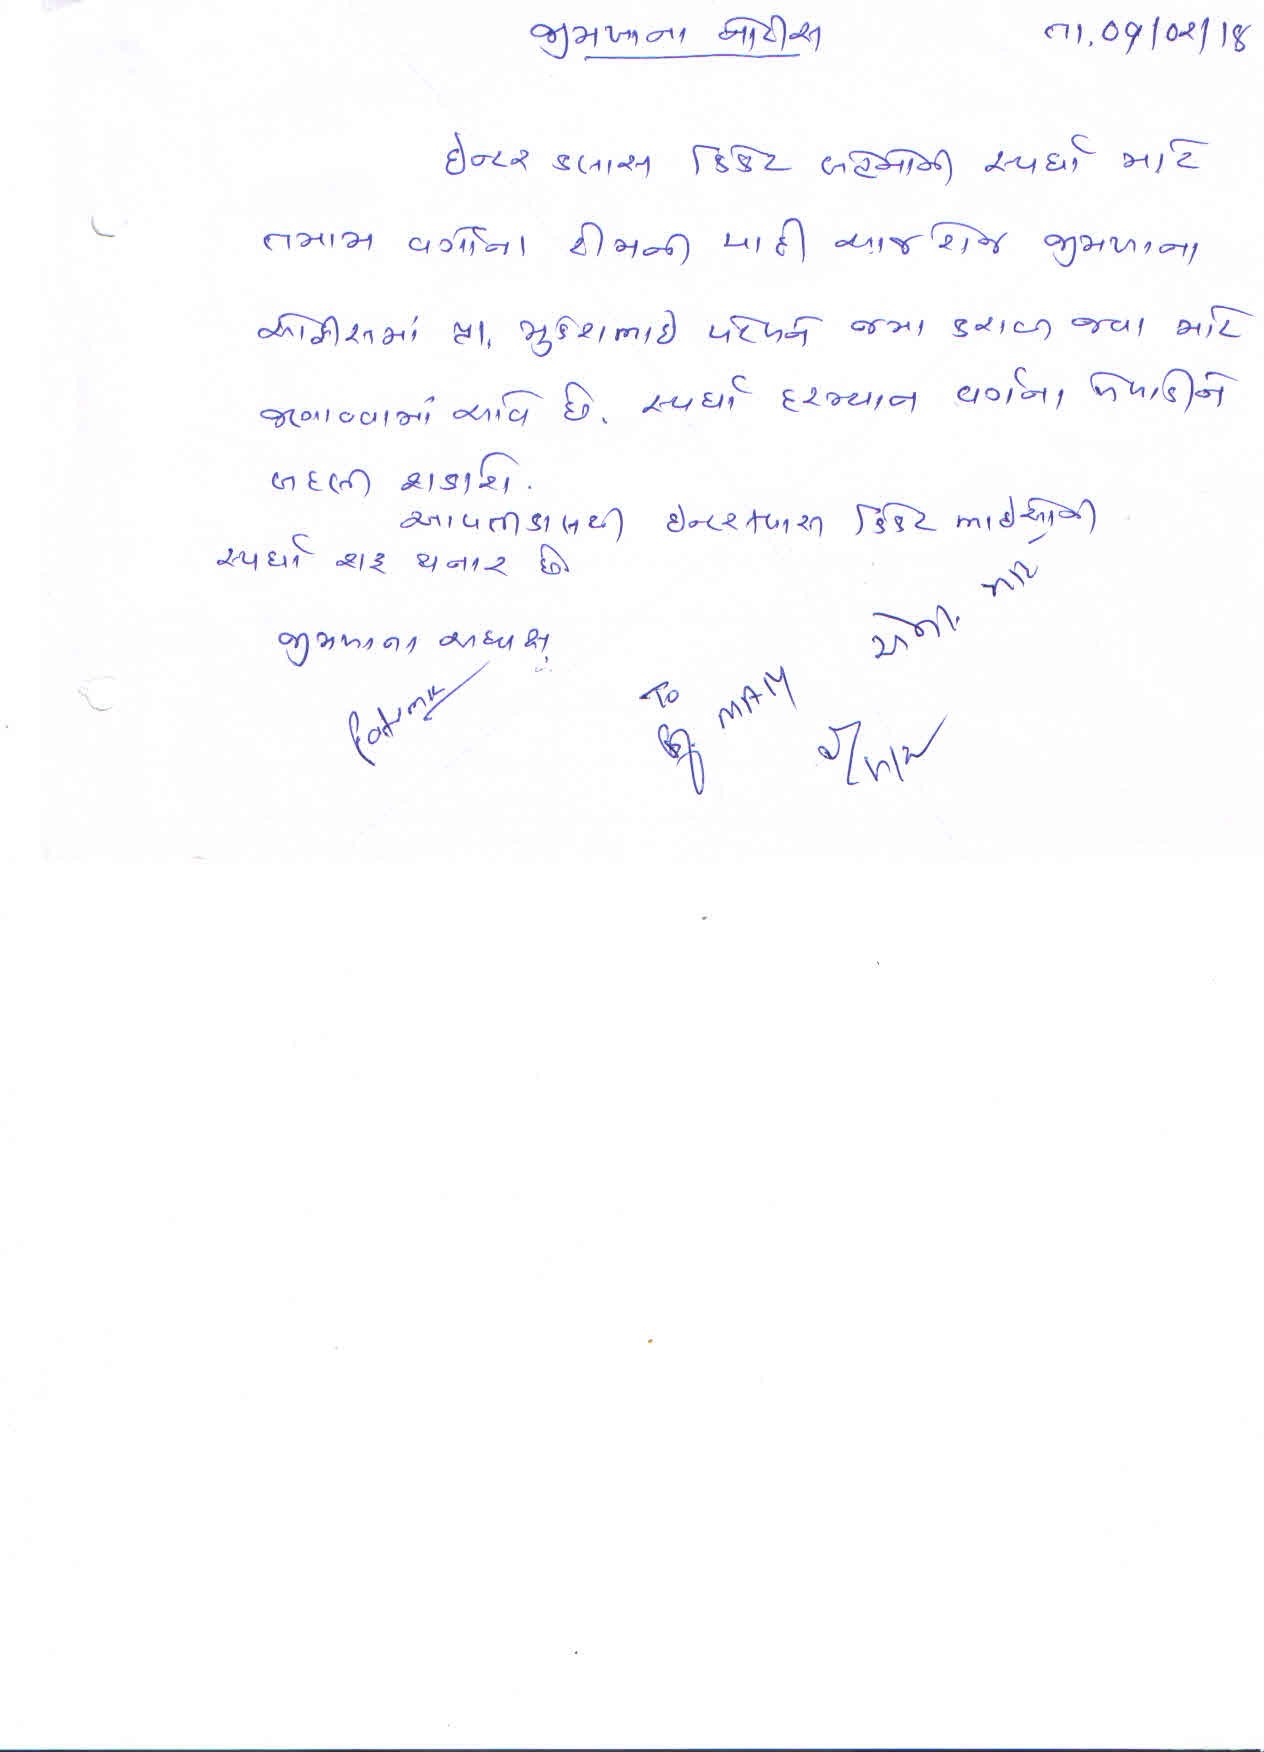 જીમખાના નોટીસ તા. ૦૧/૦૨/૧૮
ઇન્ટર કલાસ ક્રિકેટ બહેનોની સ્પર્ધા માટે
તમામ વર્ગોના ટીમની યાદી આજરોજ જીમખાના
ઓફીસમાં પ્રા. મુકેશભાઇ પટેલને જમા કરાવી જવા માટે
જણાવવામાં આવે છે. સ્પર્ધા દરમ્યાન વર્ગના ખેલાડીને
બદલી શકાશે.
આવતીકાલથી ઇન્ટરકલાસ ક્રિકેટ ભાઇઓની
સ્પર્ધા શરૂ થનાર છે.
જીમખાના અધ્યક્ષ
To
MAM